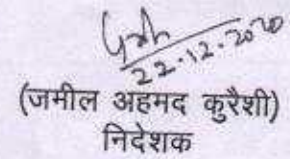 22.12.2020
(जमील अहमद कुरैशी)
निदेशक